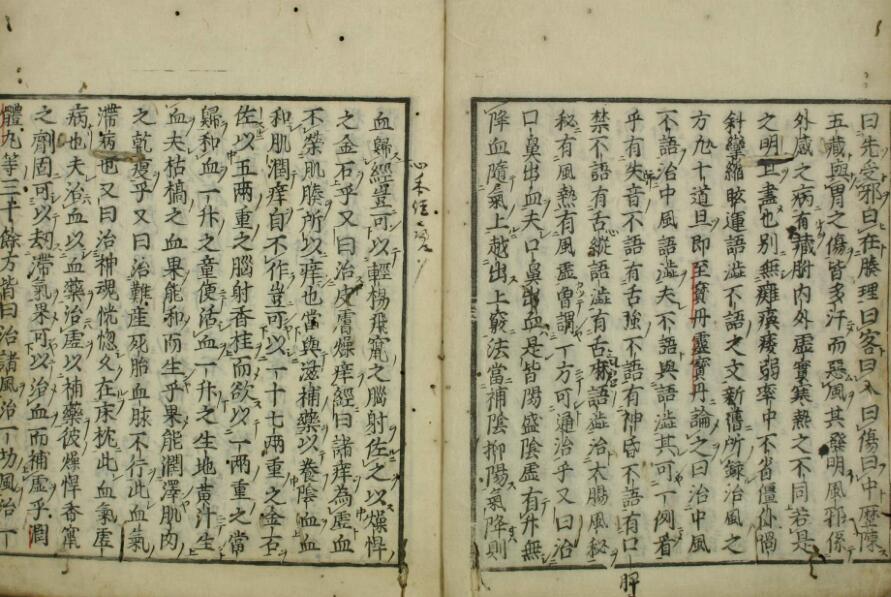 曰先受邪曰在腠理曰客曰入曰傷曰中歷陳
五藏與胃之傷皆多汗而惡風其發明風邪係
外感之病有藏腑內外虛實寒熱之不同若是
之明且盡也別無癱瘓痿弱卒中不省僵仆喎
斜攣縮眩運語澁不語之文新舊所錄治風之
方九十道且即至寶丹靈寶丹論之曰治中風
不語治中風語澁夫不語與語澁其可一例看
乎有失音不語有舌強不語有神昏不語有口
禁不語有舌縱語澁有舌麻語澁治大腸風秘
秘有風熱有風虛曾謂一方可通治乎又曰治
口鼻出血夫口鼻出血是皆陽盛陰虛有升無
降血隨氣上越出上竅法當補陰抑陽氣降則
血歸經豈可以輕楊飛竄之腦射佐之以燥悍
之金石乎又曰治皮膚燥痒經曰諸痒為虛血
不榮肌腠所以痒也當與滋補藥以養陰血血
和肌潤痒自不作豈可以一十七兩重之金石
佐以五兩重之腦射香桂而欲以一兩重之當
歸和血一升之童便活血一升之生地黃汁生
血夫枯槁之血果能和而生乎果能潤澤肌肉
之乾瘦乎又曰治難產死胎血脉不行此血氣
滯病也又曰治神魂恍惚久在床枕此血氣虛
病也夫治血以血藥治虛以補藥彼燥悍香竄
之劑固可以劫滯氣果可以治血而補虛乎潤
體丸等三十餘方皆曰治諸風治一切風治一
脾